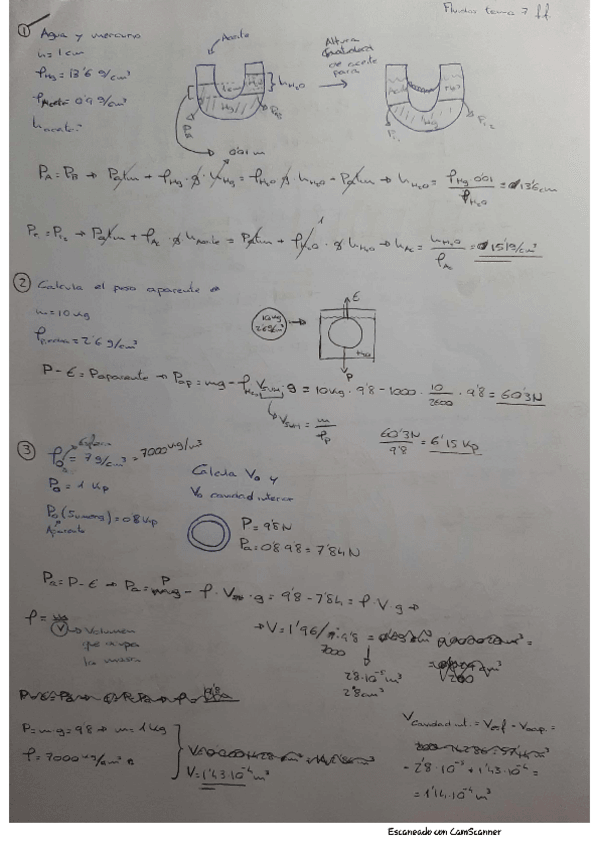 Fluidos tema 7 ff.
① Agua y mercurio
h = 1cm
ρHg = 13'6 g/cm³
ρAceite 0'9 g/cm³
haceite?
Aceite
1cm
H₂O
hH₂O
Hg
PA
PB
0'01 m
Altura
de aceite
para
Aceite
H₂O
Hg
P₁₂
PA = PB → Patm + ρHg · g · hHg = ρH₂O · g hH₂O + Patm → hH₂O = ρHg 0'01 / ρH₂O = 13'6cm
→ Patm + ρAc · g hAceite = Patm + ρH₂O · g hH₂O → hAc = hH₂O / ρAc = 15'1
② Calcula el peso aparente
m = 10 kg
= 2'6 g/cm³
10 kg
2'6 g/cm³
E
H₂O
P
P - E = Paparente → Pap = mg - ρH₂O VSum · g = 10 kg · 9'8 - 1000 · 10/2600 · 9'8 = 60'3N
VSum = m/ρp
60'3N / 9'8 = 6'15 Kp
③ ρ₀ = 7 g/cm³ = 7000 kg/m³
esfera
P₀ = 1 Kp
P₀ (Sumerg) = 0'8 Kp
Aparente
Calcula V₀ y
V₀ cavidad interior
P = 9'8 N
Pa = 0'8 9'8 = 7'84 N
Pa = P - E → Pa = mg - ρ · V · g = 9'8 - 7'84 = ρ · V · g →
ρ = m/V → Volumen
que ocupa
la masa
→ V = 1'96/ 9'8 =
7000
28·10⁻⁵ m³
2'8cm³
P = m·g = 9'8 → m = 1 Kg
ρ = 7000 kg/cm³
V = 1'43·10⁻⁴ m³
Vcavidad int. = Vesf - Vocup. =
- 2'8 · 10⁻⁵ + 1'43 · 10⁻⁴ =
= 1'14 · 10⁻⁴ m³
Escaneado con CamScanner